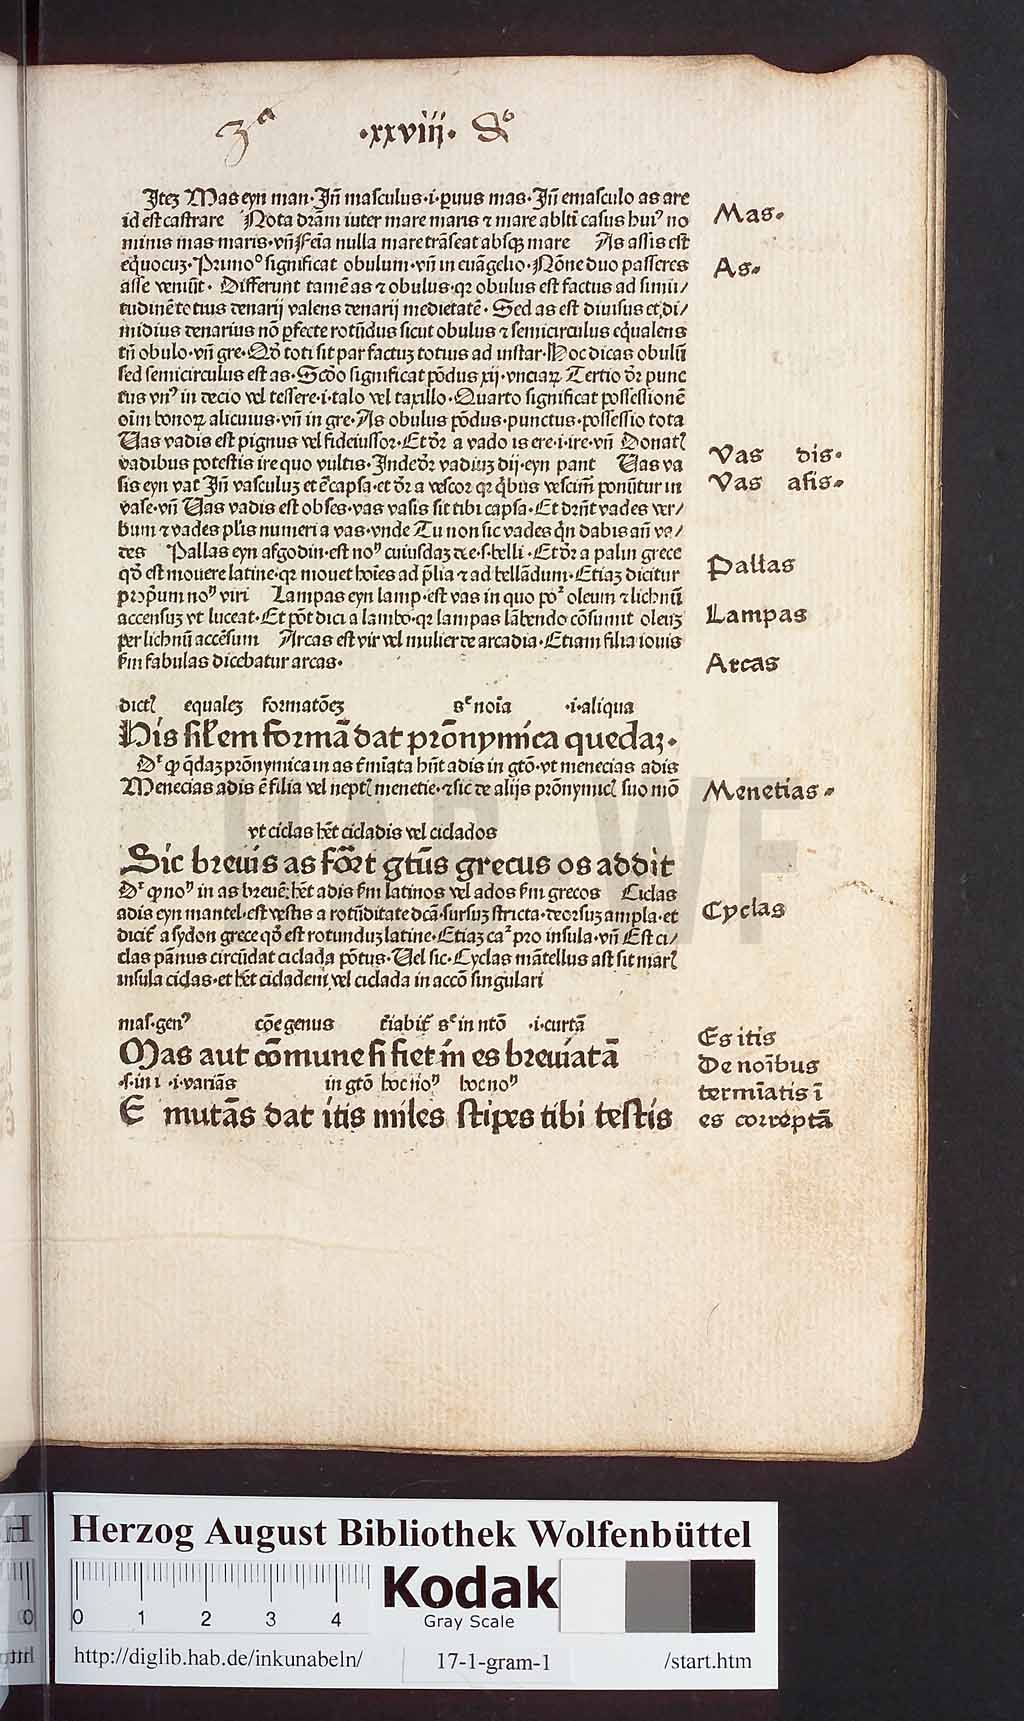 3ª ·xxviij· &º
Itez Mas eyn man · Jn̄ masculus · i · ꝑuus mas · Jn̄ emasculo as are
id est castrare Nota dr̄am iuter mare maris ⁊ mare ablti casus huiꝰ no
minis mas maris · vn̄ Fcīa nulla mare trāseat absqꝫ mare As assis est
eq̇uocuꝫ · Primo° significat obulum · vn̄ in euāgelio · Nōne duo passeres
asse veniūt · Differunt tamē as ⁊ obulus · qꝛ obulus est factus ad simi⸗
tudinē totius denarij valens denarij medietatē · Sed as est diuisus et di⸗
midius denarius nō ꝑfecte rotūdus sicut obulus ⁊ semicirculus eq̇ualens
tn̄ obulo · vn̄ gre · Qd̓ toti sit par factuꝫ totius ad instar · Hoc dicas obulū
sed semicirculus est as · Scd̓o significat pōdus xij · vnciaꝝ Tertio dr̄ punc
tus vnꝰ in decio vel tessere · i · talo vel taxillo · Quarto significat possessionē
oīm bonoꝝ alicuius · vn̄ in gre · As obulus pōdus · punctus · possessio tota
Vas vadis est pignus vel fideiussor · Et dr̄ a vado is ere · i · ire · vn̄ Donatꝰ
vadibus potestis ire quo vultis · Inde dr̄ vadiuꝫ dij · eyn pant Vas va
sis eyn vat Jn̄ vasculuꝫ et ē capsa · et dr̄ a vescor qꝛ q̇bus vescim̄ ponūtur in
vase · vn̄ Vas vadis est obses · vas vasis sit tibi capsa · Et drn̄t vades ver⸗
bum ⁊ vades pl̓is numeri a vas · vnde Tu non sic vades qn̄ dabis an̄ va⸗
des Pallas eyn afgodin · est noᵐ cuiusdaꝫ dee · s · belli · Et dr̄ a palin grece
qd̓ est mouere latine · qꝛ mouet hoīes ad p̄lia ⁊ ad bellādum · Etiaꝫ dicitur
prop̄um noᵐ viri Lampas eyn lamp · est vas in quo poᵗ oleum ⁊ lichnū
accensuꝫ vt luceat · Et pōt dici a lambo · qꝛ lampas lābendo cōsumit oleuꝫ
per lichnū accēsum Arcas est vir vel mulier de arcadia · Etiam filia iouis
km̄ fabulas dicebatur arcas ·
dictꝭ equaleꝫ formatōeꝫ sᵉ noīa · i · aliqua
His sil̓em formā dat prōnymica quedaꝫ ·
Dʳ ꝙ q̄daꝫ prōnymica in as t̄mīata hn̄t adis in gtō · vt menecias adis
Menecias adis ē filia vel neptꝭ menetie · ⁊ sic de alijs prōnymicꝭ suo mō
vt ciclas hēt cicladis vel ciclados
Sic breuis as fōr̄t gtūs grecus os addit
Dʳ ꝙ noᵐ in as breuē hēt adis km̄ latinos vel ados km̄ grecos Ciclas
adis eyn mantel · est vestis a rotūditate dcā · sursuꝫ stricta · deorsuꝫ ampla · et
dicit̄ a sydon grece qd̓ est rotunduꝫ latine · Etiaꝫ caᵗ pro insula · vn̄ Est ci⸗
clas pānus circūdat ciclada pōtus · Vel sic · Cyclas mātellus ast sit marꝭ
insula ciclas · et hēt cicladem vel ciclada in accō singulari
mas · genꝰ cōe genus t̄iabit̄ sᵉ in ntō · i · curtā
Mas aut cōmune si fiet in es breuiatā
· s · in i · i · variās in gtō hoc noᵐ hoc noᵐ
E mutās dat itis miles stipes tibi testis
Mas ·
As ·
Vas dis ·
Vas asis ·
Pallas
Lampas
Arcas
Menetias ·
Cyclas
Es itis
De noībus
termīatis ī
es correptā
HAB-WF
Herzog August Bibliothek Wolfenbüttel
0 1 2 3 4
Kodak
Gray Scale
http://diglib.hab.de/inkunabeln/ 17-1-gram-1 /start.htm